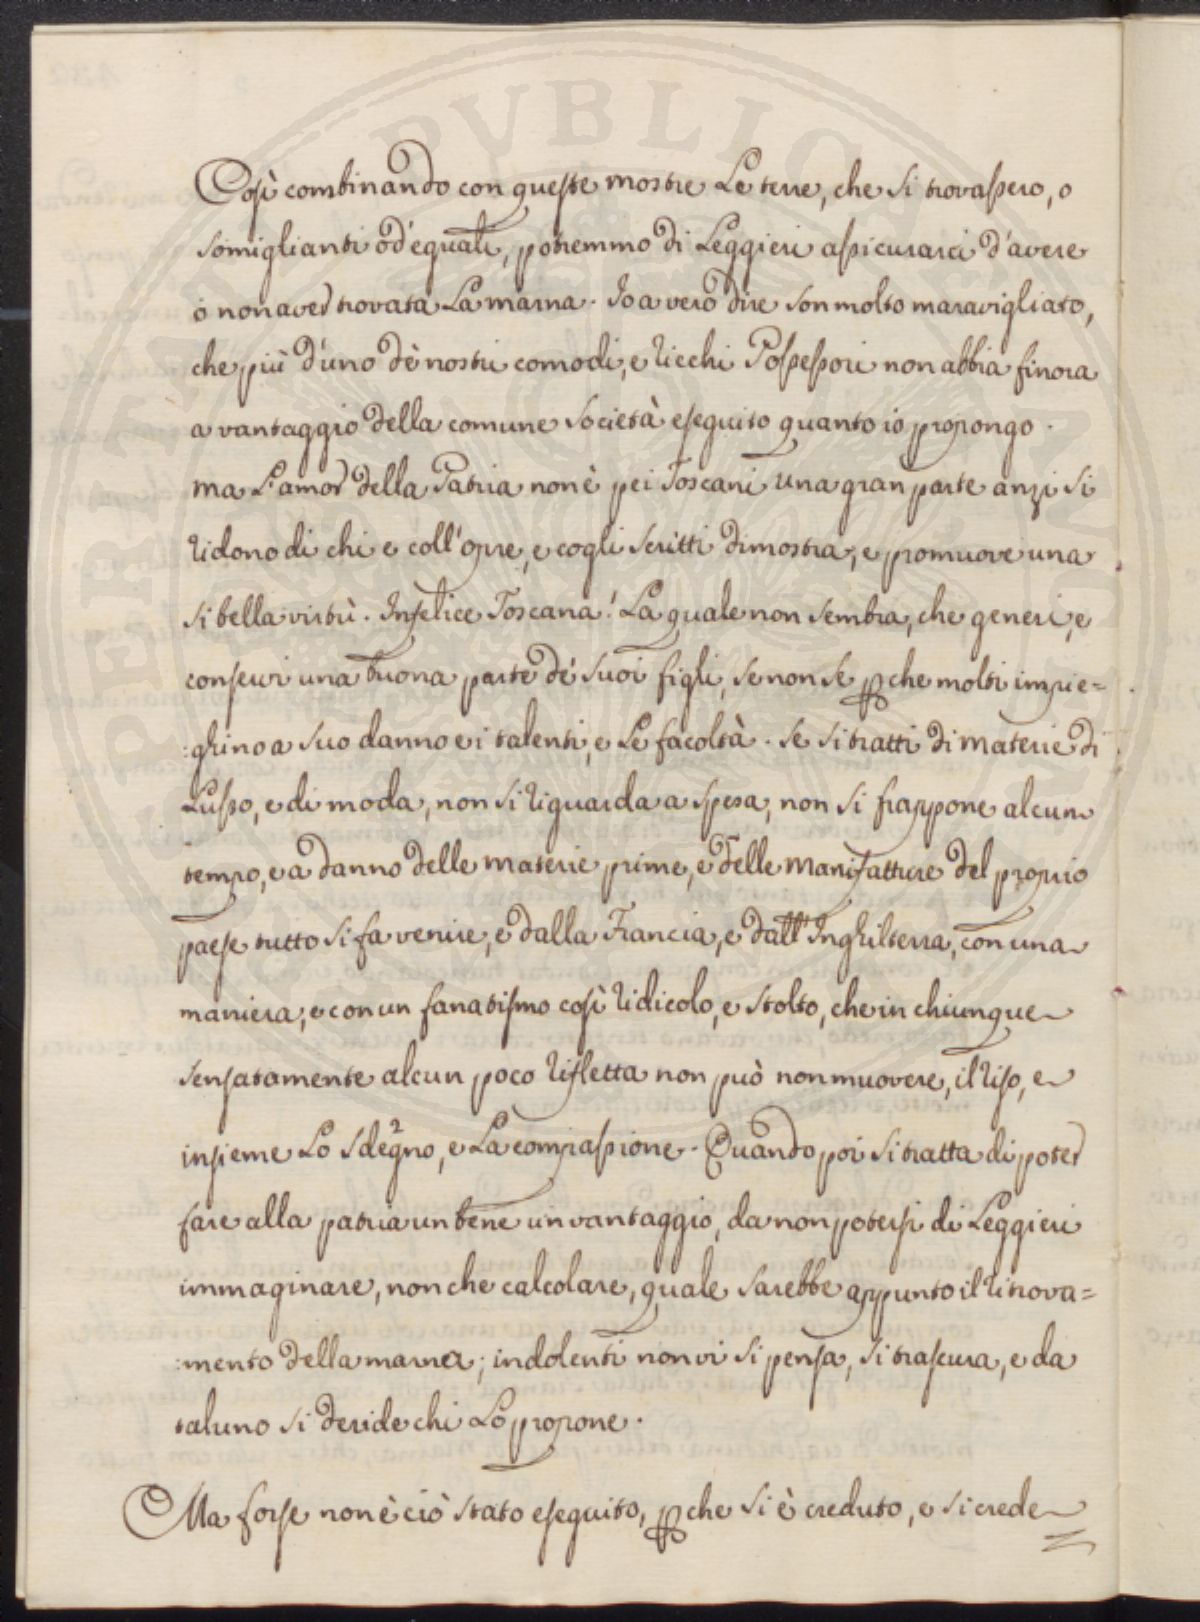 Così combinando con queste mostre Le terre, che si trovassero, o
somiglianti od' eguali, potremmo di Leggieri assicurarci d'avere
o non aver trovata La marna. Io a vero dire son molto maravigliato,
che più d'uno dè nostri comodi, e ricchi Possessori non abbia finora
a vantaggio della comune società eseguito quanto io propongo.
ma L'amor della Patria non è pei Toscani una gran parte anzi si
ridono di chi e coll'opre, e cogli scritti dimostra, e promuove una
si bella virtù. Infelice Toscana! La quale non sembra, che generi, e
conservi una buona parte dé suoi figli, se non se pche molti impie=
:ghino a suo danno e i talenti, e Le facoltà. se si tratti di materie di
Lusso, e di moda, non si riguarda a spesa, non si frappone alcun
tempo, e a danno delle materie prime, e delle manifatture del proprio
paese tutto si fa venire, e dalla Francia, e dall'Inghilterra, con una
maniera, e con un fanatismo così ridicolo, e stolto, che in chiunque
sensatamente alcun poco rifletta non può non muovere, il riso, e
insieme Lo sdegno, e La compassione. Quando poi si tratta di poter
fare alla patria un bene un vantaggio, da non potersi di Leggieri
immaginare, non che calcolare, quale sarebbe appunto il ritrova=
:mento della marna; indolenti non vi si pensa, si trascura, e da
taluno si deride chi Lo propone.
Ma forse non è ciò stato eseguito, pche si è creduto, e si crede